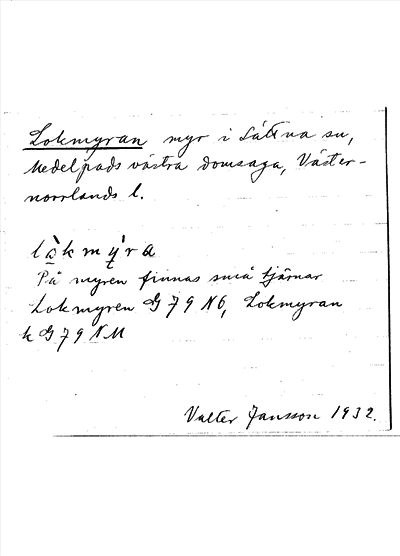 Lokmyran myr i Sättna sn,
Medelpads västra domsaga, Väster-
norrlands l.
lò̲kmý̲ra
På myren finnas små tjärnar
Lokmyren G 79 N6, Lokmyran
k G 79 NM
Valter Jansson 1932.